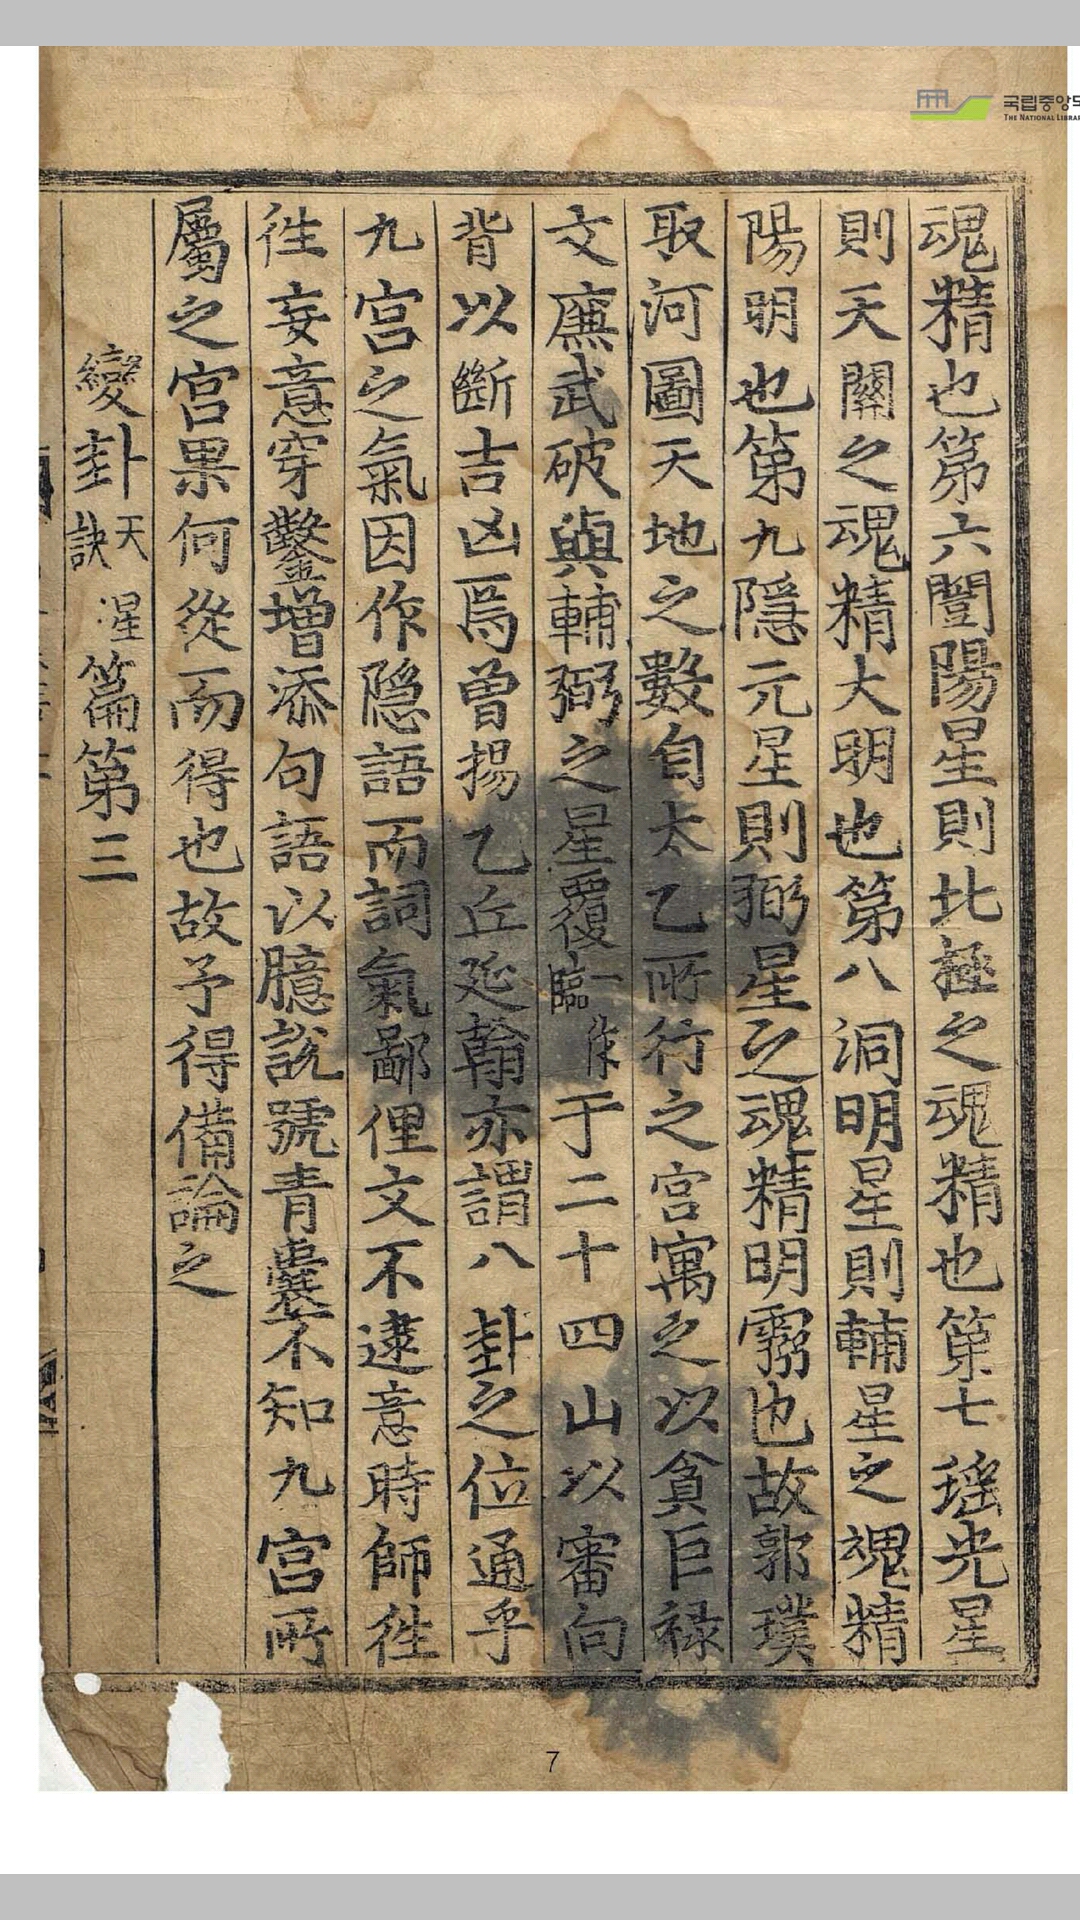 魂精也第六闓陽星則北極之魂精也第七瑤光星
則天關之魂精大明也第八洞明星則輔星之魂精
陽明也第九隱元星則弼星之魂精明也故郭璞
取河圖天地之數自太乙所行之宮寓之以貪巨祿
文廉武破與輔弼之星覆臨一作于二十四山以審向
背以斷吉凶焉曾揚乙丘延翰亦謂八卦之位通乎
九宮之氣因作隱語而詞氣鄙俚文不逮意時師徃
徃妄意穿鑿增添句語以臆說號青囊不知九宮所
屬之宮果何從而得也故予得備論之
變卦天星訣篇第三
국립중앙도
THE NATIONAL LIBRA
7